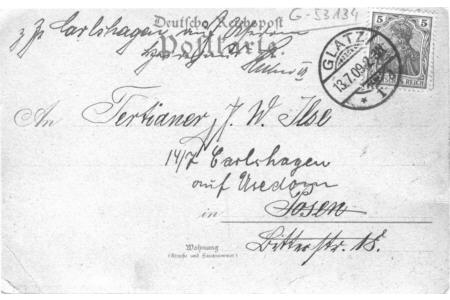 G-53134
Deutsche Reichspost
Postkarte
z. Zt. Carlshagen auf Usedom
GLATZ
13.7.09
5 5
REICH
An Tertianer J. W. Ilse
14/7 Carlshagen
auf Usedom
in Posen
Wohnung
(Straße und Hausnummer)
Bitterstr. 18.